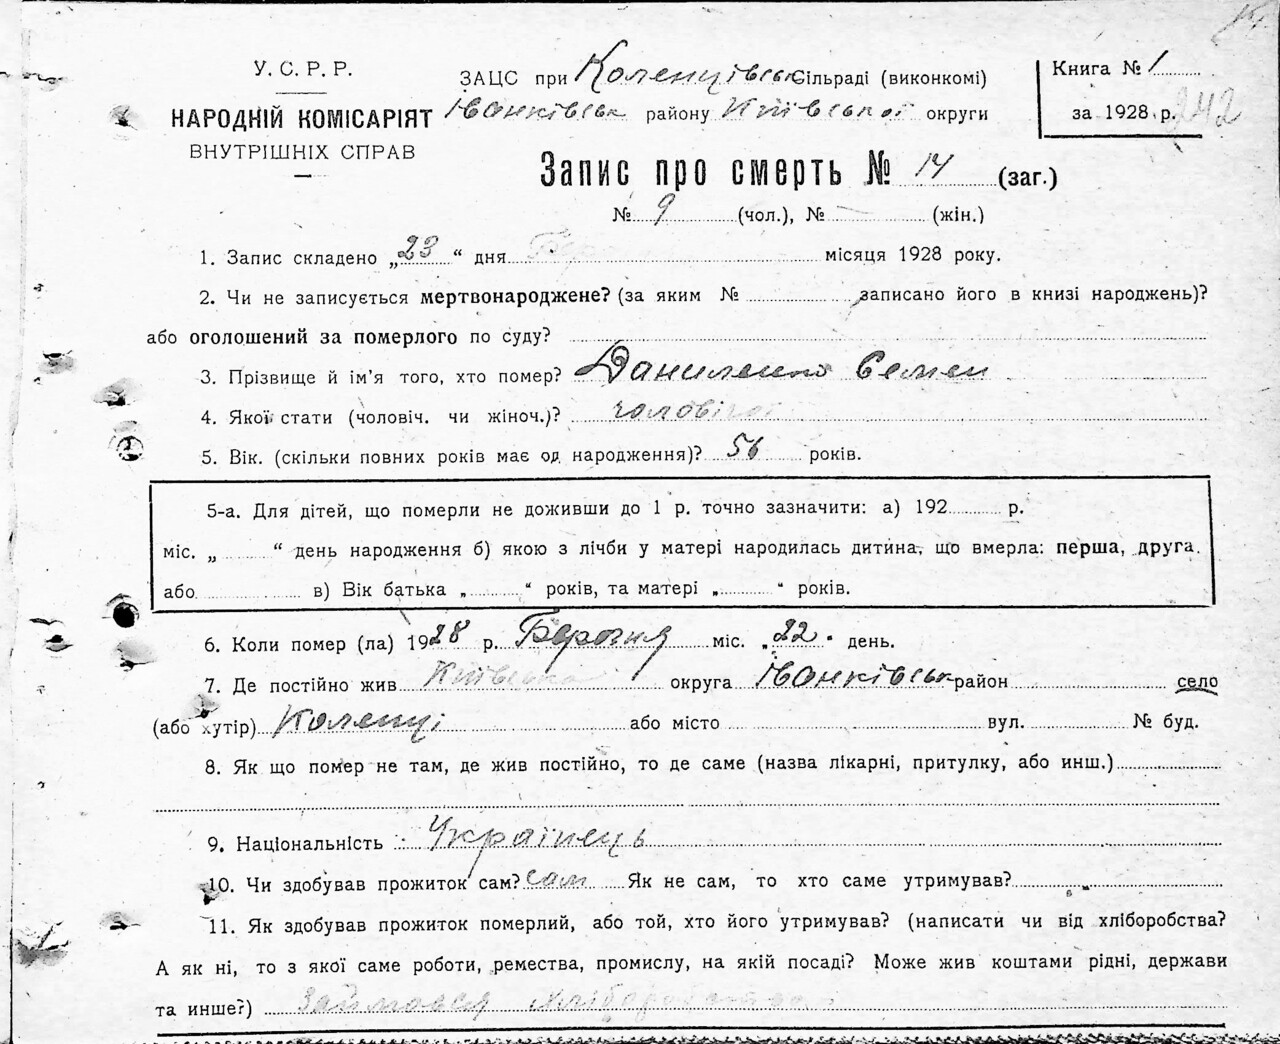 У. С. Р. Р.
НАРОДНІЙ КОМІСАРІЯТ
ВНУТРІШНІХ СПРАВ
ЗАЦС при Коленцівськ сільраді (виконкомі)
Іванківськ району Київської округи
Книга № 1
за 1928 р.
242
14
Запис про смерть № 14 (заг.)
№ 9 (чол.), № — (жін.)
1. Запис складено „23“ дня Бер місяця 1928 року.
2. Чи не записується мертвонароджене? (за яким № записано його в книзі народжень)?
або оголошений за померлого по суду?
3. Прізвище й ім'я того, хто помер? Даниленко Семен
4. Якої стати (чоловіч. чи жіноч.)? чоловічої
5. Вік. (скільки повних років має од народження)? 56 років.
5-а. Для дітей, що померли не доживши до 1 р. точно зазначити: а) 192 р.
міс. „ “ день народження б) якою з лічби у матері народилась дитина, що вмерла: перша, друга.
або в) Вік батька „ “ років, та матері „ “ років.
6. Коли помер (ла) 1928 р. Березня міс. „22“ день.
7. Де постійно жив Київська округа Іванківськ район село
(або хутір) Коленці або місто вул. № буд.
8. Як що помер не там, де жив постійно, то де саме (назва лікарні, притулку, або инш.)
9. Національність Українець
10. Чи здобував прожиток сам? сам Як не сам, то хто саме утримував?
11. Як здобував прожиток померлий, або той, хто його утримував? (написати чи від хліборобства?
А як ні, то з якої саме роботи, ремества, промислу, на якій посаді? Може жив коштами рідні, держави
та инше?) Займався хліборобством